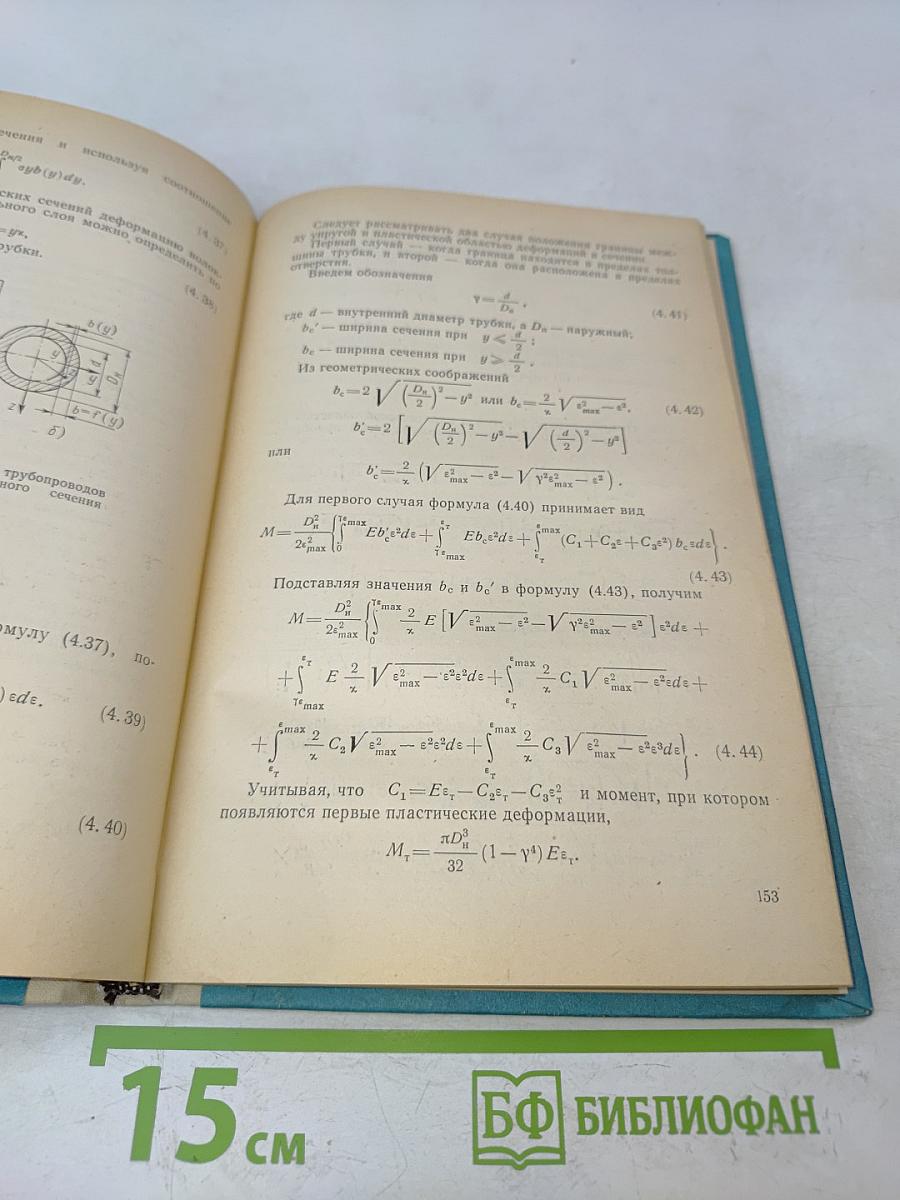 ечения и используя соотношение
D_н/2
σyb(y)dy.
(4.37)
ских сечений деформацию волок-
ьного слоя можно определить по
=yϰ,
(4.38)
рубки.
b(y)
y
y
d
D_н
z
b=f(y)
б)
трубопроводов
ного сечения
рмулу (4.37), по-
) εdε.
(4.39)
(4.40)
Следует рассматривать два случая положения границы меж-
ду упругой и пластической областью деформаций в сечении.
Первый случай — когда граница находится в пределах тол-
щины трубки, и второй — когда она расположена в пределах
отверстия.
Введем обозначения
γ = d/D_н , (4.41)
где d — внутренний диаметр трубки, а D_н — наружный;
b_c′ — ширина сечения при y ⩽ d/2 ;
b_c — ширина сечения при y ⩾ d/2 .
Из геометрических соображений
b_c = 2 √((D_н/2)² — y²) или b_c = 2/ϰ √(ε²_max — ε²), (4.42)
b′_c = 2 [√((D_н/2)² — y²) — √((d/2)² — y²)]
или
b′_c = 2/ϰ (√(ε²_max — ε²) — √(γ²ε²_max — ε²)) .
Для первого случая формула (4.40) принимает вид
M = D²_н/2ε²_max {∫_0^{γε_max} Eb′_cε²dε + ∫_{γε_max}^{ε_т} Eb_cε²dε + ∫_{ε_т}^{ε_max} (C₁+C₂ε+C₃ε²) b_cεdε} .
(4.43)
Подставляя значения b_c и b_c′ в формулу (4.43), получим
M = D²_н/2ε²_max {∫_0^{γε_max} 2/ϰ E [√(ε²_max — ε²) — √(γ²ε²_max — ε²)] ε²dε +
+ ∫_{γε_max}^{ε_т} E 2/ϰ √(ε²_max — ε²)ε²dε + ∫_{ε_т}^{ε_max} 2/ϰ C₁ √(ε²_max — ε²)εdε +
+ ∫_{ε_т}^{ε_max} 2/ϰ C₂ √(ε²_max — ε²)ε²dε + ∫_{ε_т}^{ε_max} 2/ϰ C₃ √(ε²_max — ε²)ε³dε} . (4.44)
Учитывая, что C₁ = Eε_т — C₂ε_т — C₃ε²_т и момент, при котором
появляются первые пластические деформации,
M_т = πD³_н/32 (1 — γ⁴) Eε_т.
153
15 см
БФ БИБЛИОФАН